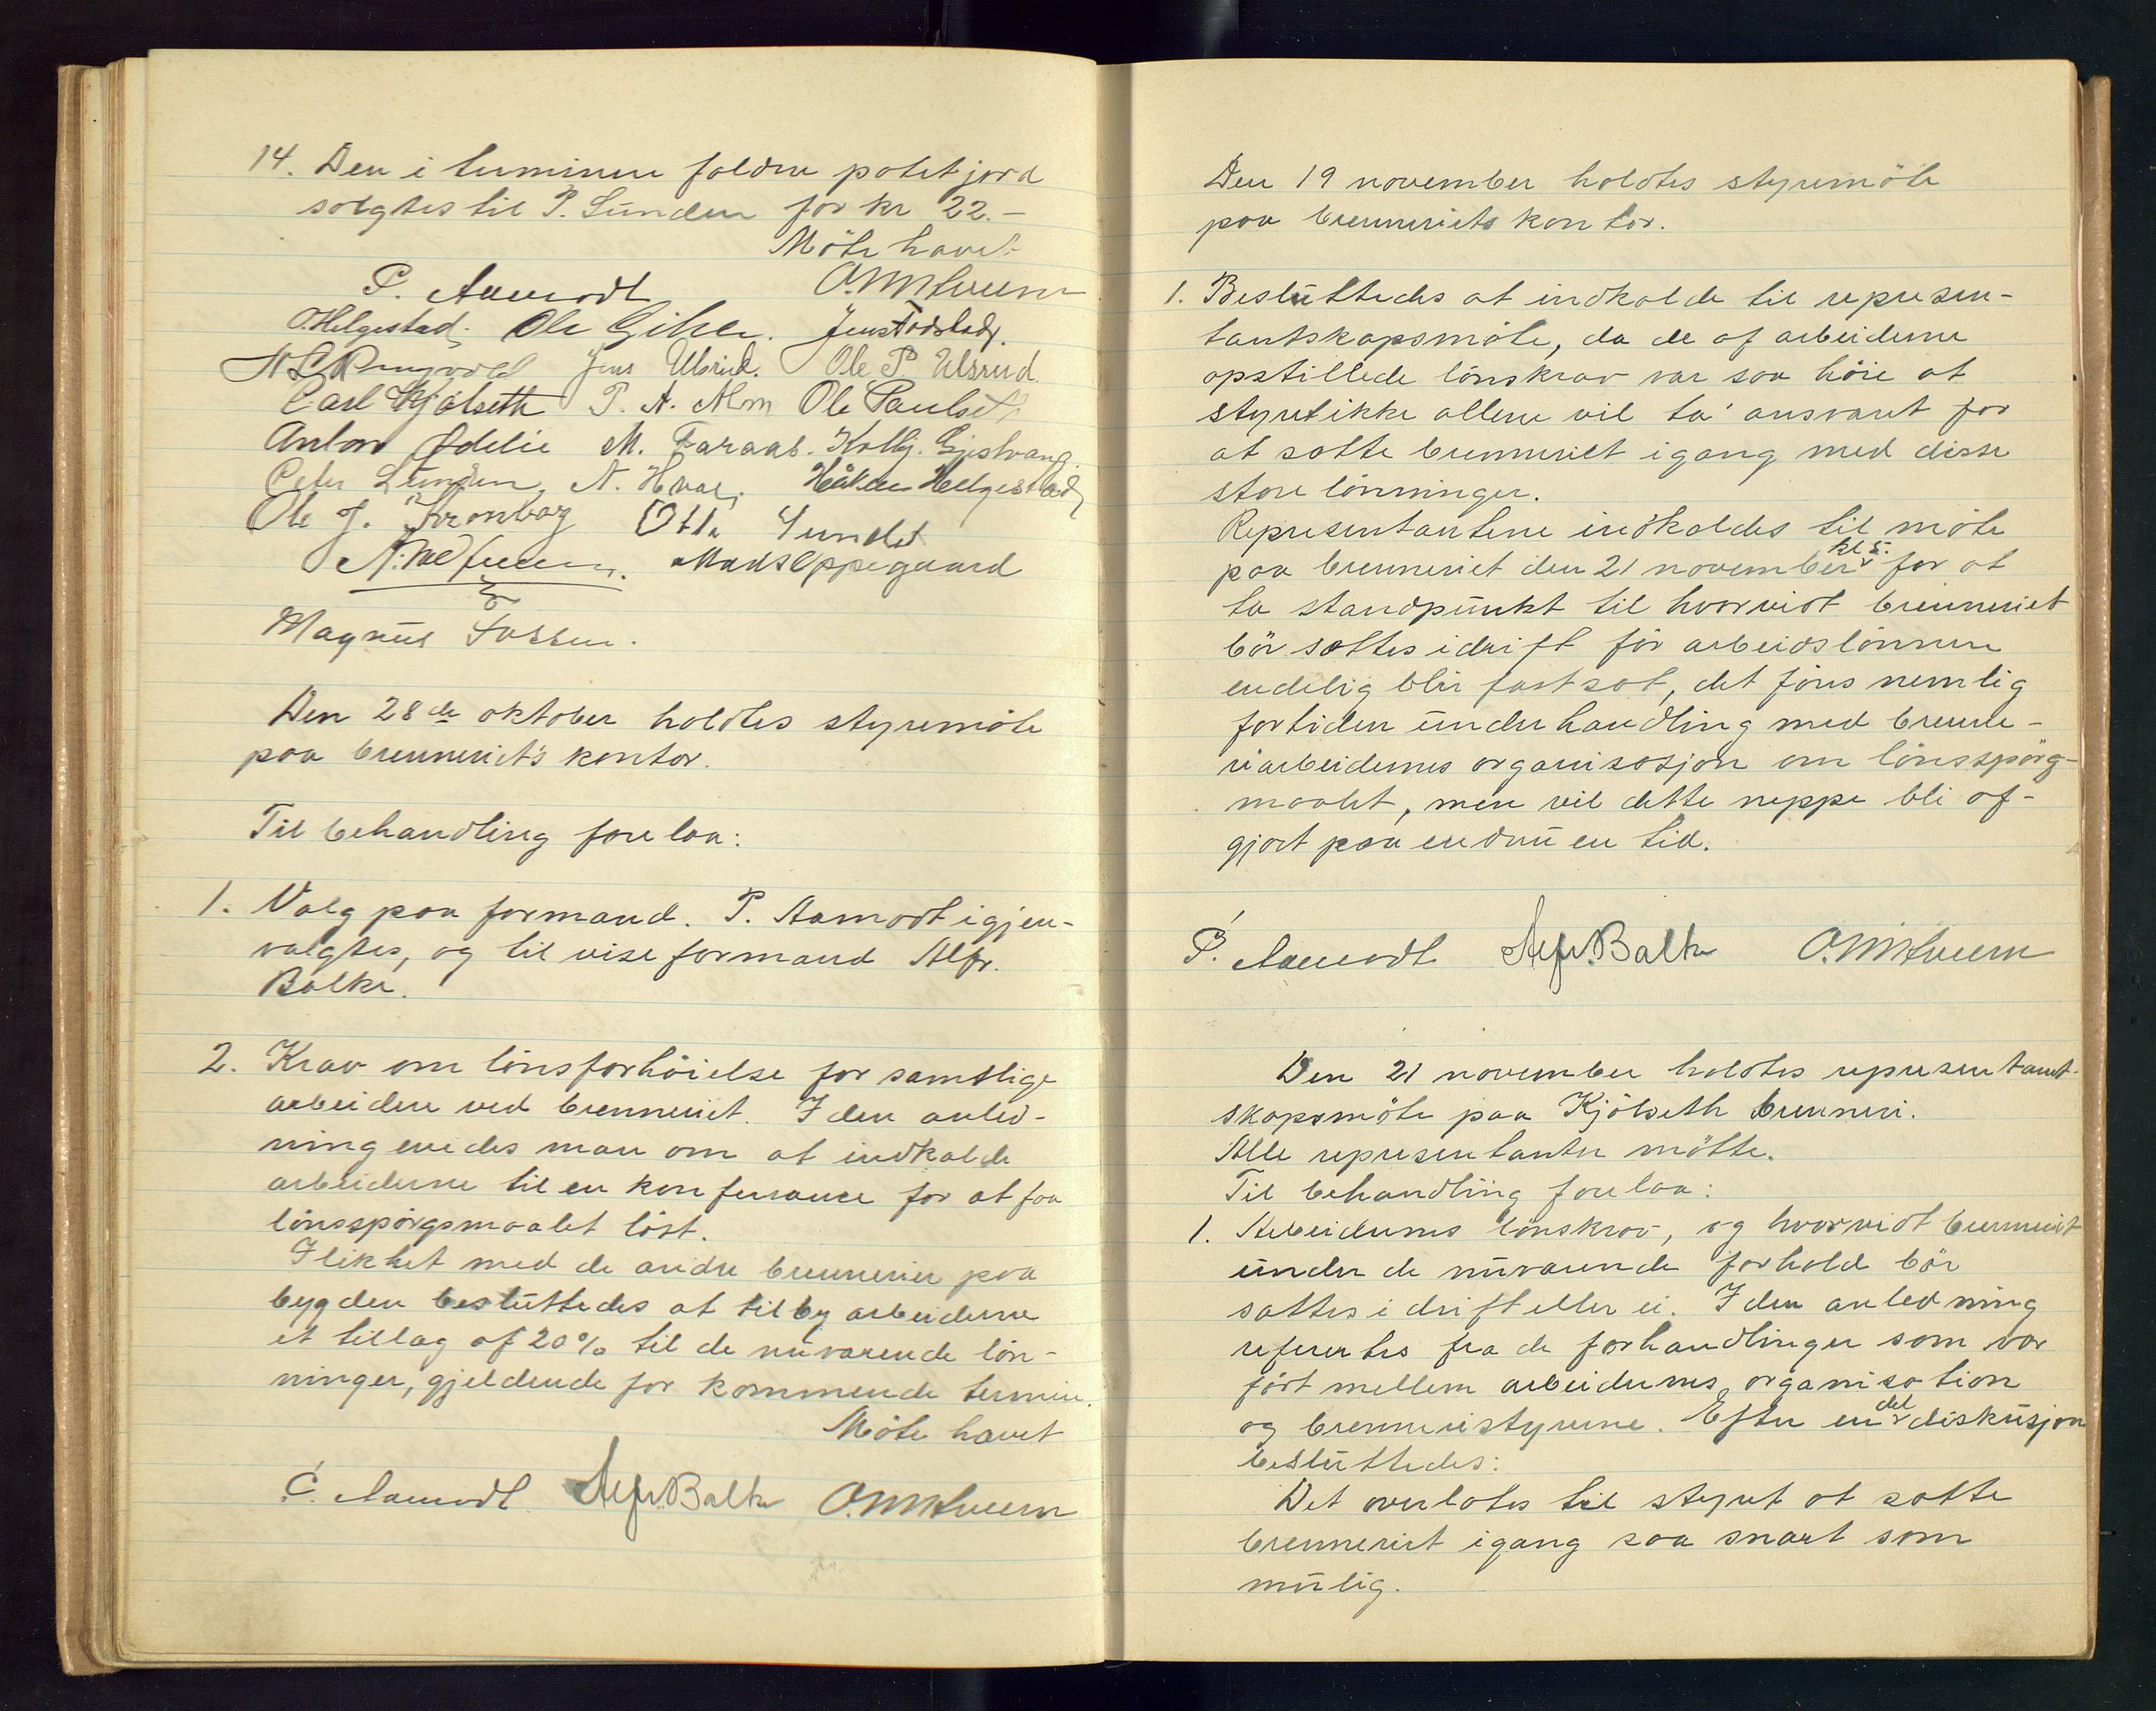 14. Den i terminen faldne potetjord
solgtes til P. Lunden for kr 22.–
Möte hævet
P. Aamodt O. M. Hveem
O Helgestad. Ole Gihle. Jens Fodstad.
N L Ringvold Jens Ulsrud. Ole P. Ulsrud.
Carl Kjølseth P. A. Alm Ole Paulseth
Anton Ødelie M. Faraas. Kolbj. Gjestvang
Peter Lunden, N. Hval, Håken Helgestad
Ole J. Kronborg Otto Sundet
Mads Eppegaard
Magnus Fossen.
Den 28de oktober holdtes styremöte
paa brenneriet's kontor.
Til behandling forelaa:
1. Valg paa formand. P. Aamodt igjen-
valgtes, og til viseformand Alfr.
Balke.
2. Krav om lönsforhöielse for samtlige
arbeidere ved brenneriet. I den anled-
ning enedes man om at indkalde
arbeiderne til en konferance for at faa
lönsspörgsmaalet löst.
I likhet med de andre brennerier paa
bygden besluttedes at tilby arbeiderne
et tillæg af 20% til de nuværende løn-
ninger, gjeldende for kommende termin.
Möte hævet
P. Aamodt Alfr. Balke O. M. Hveem
Den 19 november holdtes styremöte
paa brenneriets kontor.
1. Besluttedes at indkalde til represen-
tantskapsmöte, da de af arbeiderne
opstillede lönskrav var saa höie at
styret ikke allene vil ta' ansvaret for
at sætte brenneriet igang med disse
store lönninger.
Representantene indkaldes til möte
paa brenneriet den 21 november kl 5. for at
ta standpunkt til hvorvidt brenneriet
bör sættes i drift för arbeidslönnen
endelig blir fastsat, det föres nemlig
fortiden underhandling med brenne-
riarbeidernes organisasjon om lönsspörg-
maalet, men vil dette neppe bli af-
gjort paa endnu en tid.
P. Aamodt Alfr. Balke O. M. Hveem
Den 21 november holdtes representant-
skapsmöte paa Kjölseth brenneri.
Alle representanter mötte.
Til behandling forelaa:
1. Arbeidernes lönskrav, og hvorvidt brenneriet
under de nuværende forhold bör
sættes i drift eller ei. I den anledning
referertes fra de forhandlinger som var
fört mellem arbeidernes organisation
og brenneristyrerne. Efter en del diskusjon
besluttedes:
Det overlates til styret at sætte
brenneriet igang saa snart som
mulig.